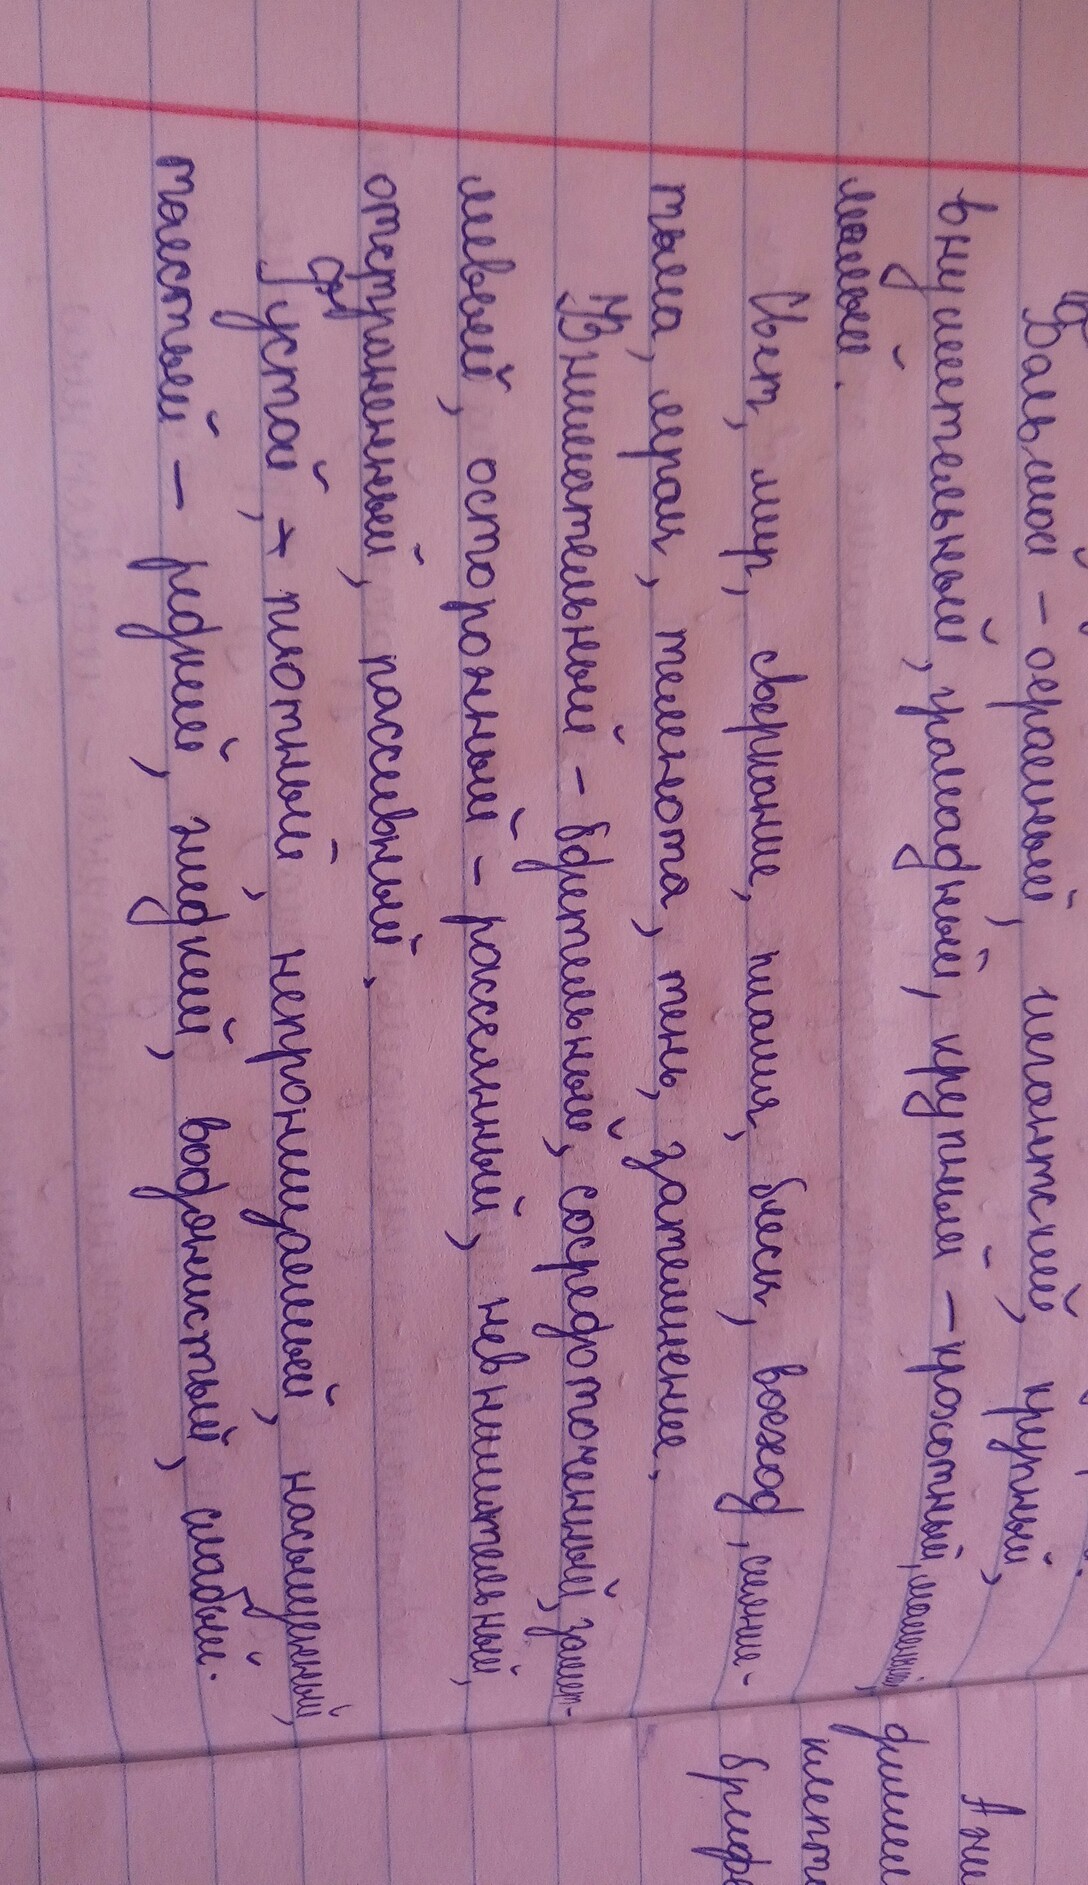 Большой – огромный, гигантский, крупный,
внушительный, громадный, крупный – крохотный, маленький,
малый.
Свет, мир, сверкание, пламя, блеск, восход, сияние –
тьма, мрак, темнота, тень, затемнение.
Внимательный – бдительный, сосредоточенный, замет-
ливый, осторожный – рассеянный, невнимательный,
отстраненный, пассивный.
Густой, плотный, непроницаемый, насыщенный,
толстый – редкий, жидкий, водянистый, слабый.